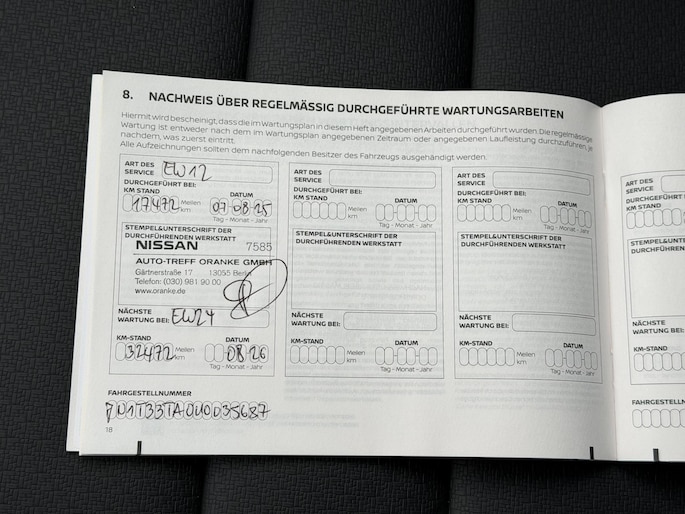 8. NACHWEIS ÜBER REGELMÄSSIG DURCHGEFÜHRTE WARTUNGSARBEITEN
Hiermit wird bescheinigt, dass die im Wartungsplan in diesem Heft angegebenen Arbeiten durchgeführt wurden. Die regelmässige
Wartung ist entweder nach dem im Wartungsplan angegebenen Zeitraum oder angegebenen Laufleistung durchzuführen, je
nachdem, was zuerst eintritt.
Alle Aufzeichnungen sollten dem nachfolgenden Besitzer des Fahrzeugs ausgehändigt werden.
ART DES
SERVICE EW12
DURCHGEFÜHRT BEI:
KM STAND DATUM
17472 Meilen km 07-08-25
Tag - Monat - Jahr
STEMPEL&UNTERSCHRIFT DER
DURCHFÜHRENDEN WERKSTATT
NISSAN 7585
AUTO-TREFF ORANKE GMBH
Gärtnerstraße 17 13055 Berlin
Telefon: (030) 981 90 00
www.oranke.de
NÄCHSTE
WARTUNG BEI: EW24
KM-STAND DATUM
32472 Meilen km 08-26
Tag - Monat - Jahr
ART DES
SERVICE
DURCHGEFÜHRT BEI:
KM STAND DATUM
Meilen
km
Tag - Monat - Jahr
STEMPEL&UNTERSCHRIFT DER
DURCHFÜHRENDEN WERKSTATT
NÄCHSTE
WARTUNG BEI:
KM-STAND DATUM
Meilen
km
Tag - Monat - Jahr
ART DES
SERVICE
DURCHGEFÜHRT BEI:
KM STAND DATUM
Meilen
km
Tag - Monat - Jahr
STEMPEL&UNTERSCHRIFT DER
DURCHFÜHRENDEN WERKSTATT
NÄCHSTE
WARTUNG BEI:
KM-STAND DATUM
Meilen
km
Tag - Monat - Jahr
FAHRGESTELLNUMMER
18
ART DES
SERVICE
DURCHGEFÜHRT
KM STAND
STEMPEL&UNTER
DURCHFÜHREND
NÄCHSTE
WARTUNG BEI
KM-STAND
FAHRGESTELLN